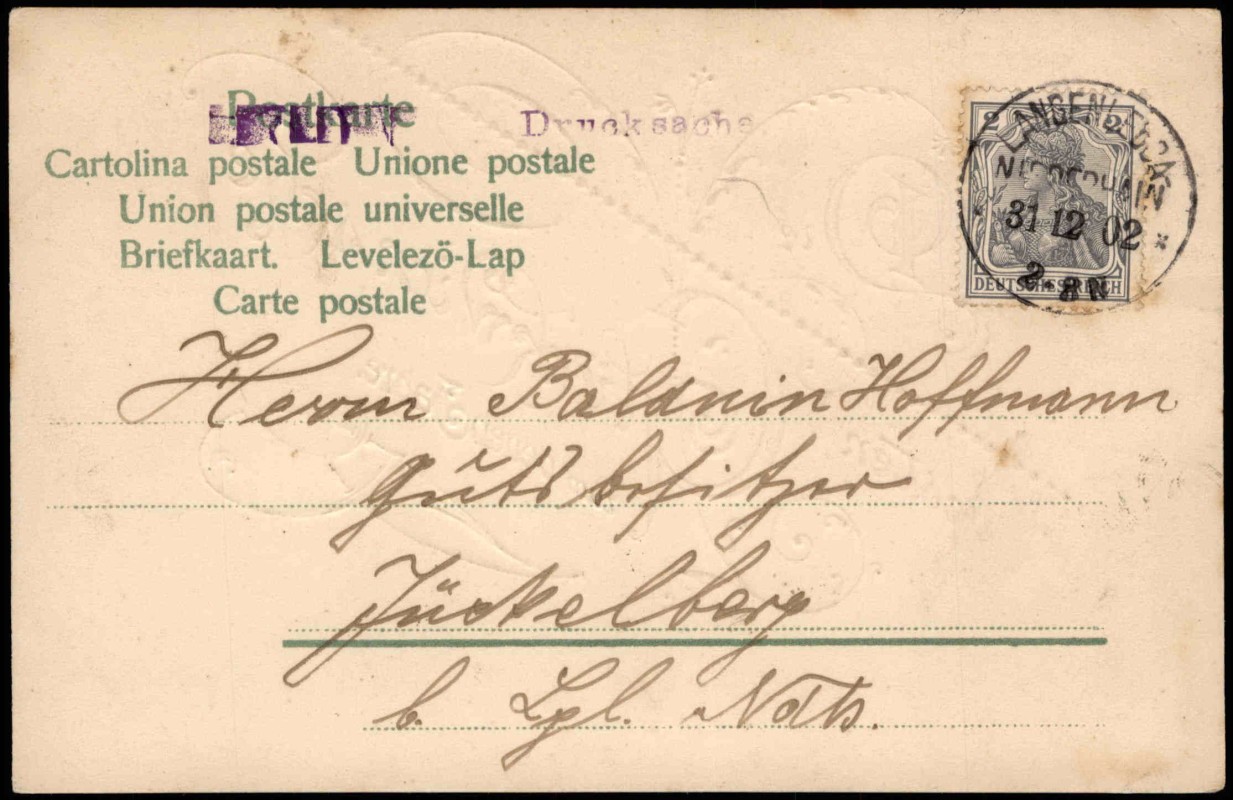 Postkarte
Drucksache
Cartolina postale Unione postale
Union postale universelle
Briefkaart. Levelezö-Lap
Carte postale
2 2
DEUTSCHES REICH
31 12 02
Herrn Baldwin Hoffmann
Gutsbesitzer
Jückelberg
b. Lgl. Ndth.